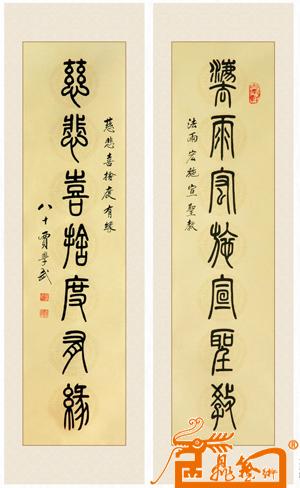 灋雨宏施宣聖教
法雨宏施宣聖教
慈悲喜捨度有緣
慈悲喜捨度有緣
八十賈學武